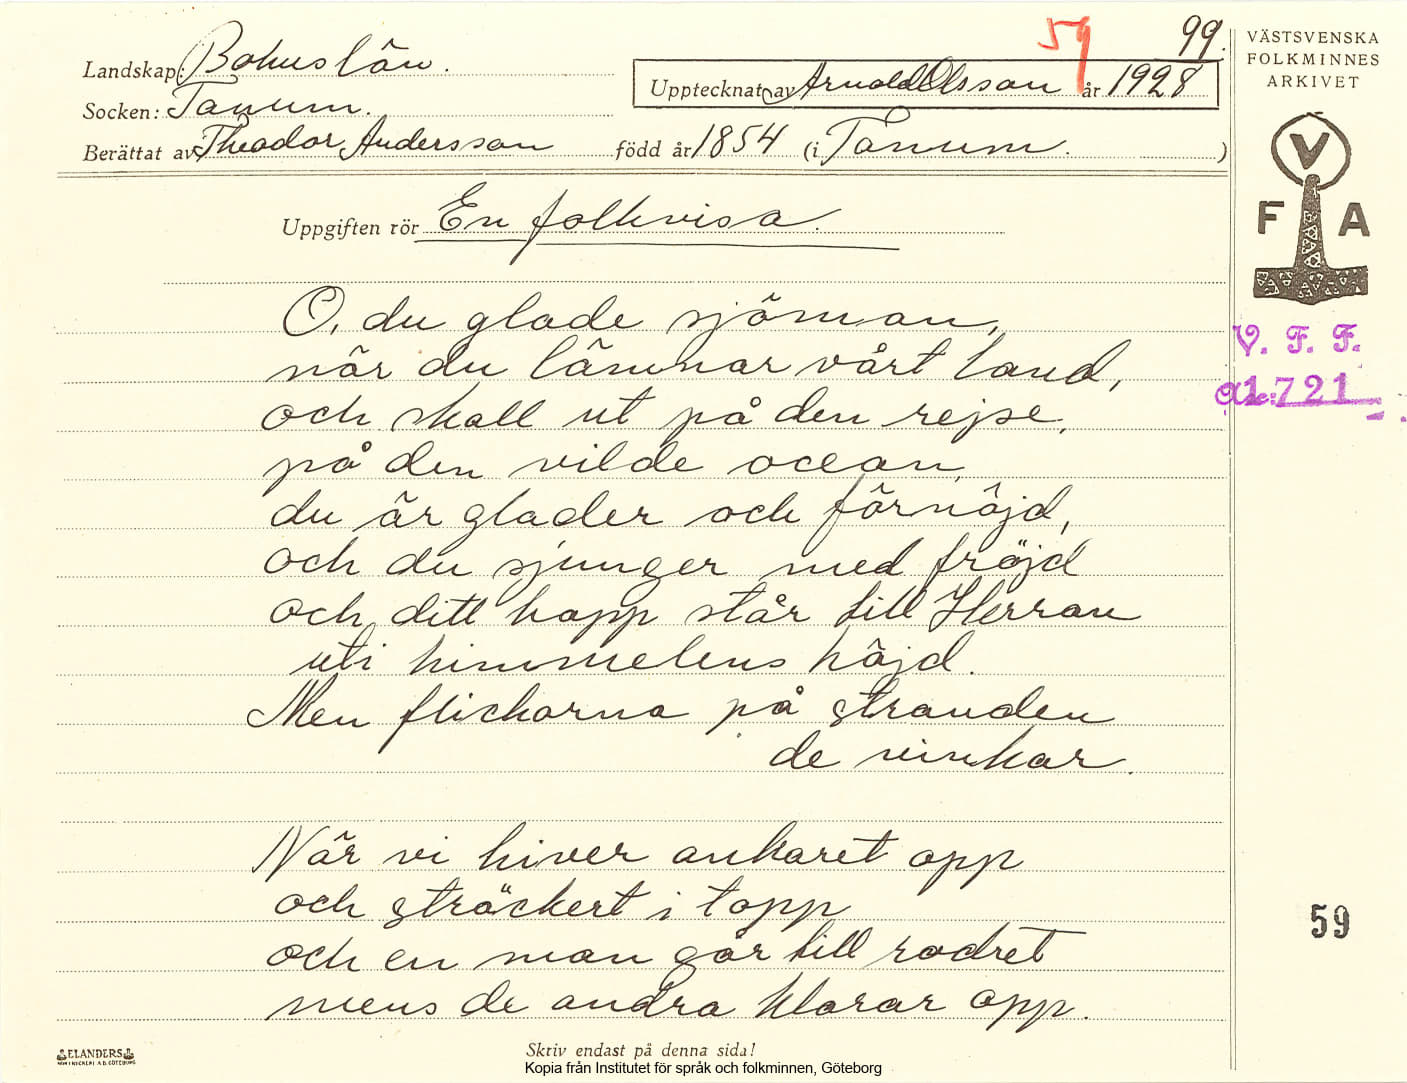 59
99.
Landskap: Bohuslän.
Upptecknat av Arnold Olsson år 1928
Socken: Tanum.
Berättat av Theodor Andersson född år 1854 (i Tanum. )
Uppgiften rör En folkvisa.
VÄSTSVENSKA
FOLKMINNES
ARKIVET
V
F A
V. F. F.
1721
O, du glade sjöman,
när du lämnar vårt land,
och skall ut på den rejse,
på den vilde ocean,
du är glader och förnöjd,
och du sjunger med fröjd
och ditt hopp står till Herran
uti himmelens höjd.
Men flickorna på stranden
de vinkar.
När vi hiver ankaret opp
och sträckert i topp
och en man går till rodret
mens de andra klarar opp.
59
ELANDERS
Skriv endast på denna sida!
Kopia från Institutet för språk och folkminnen, Göteborg